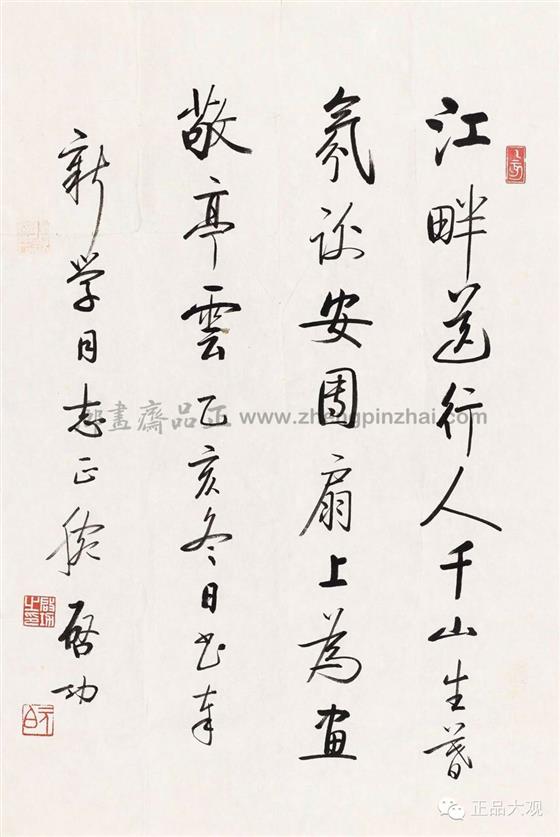 江畔送行人千山生暮
氛謝安團扇上為画
敬亭雲乙亥冬日书奉
新学同志正腕 启功
www.zhengpinzhai.com
正品大观